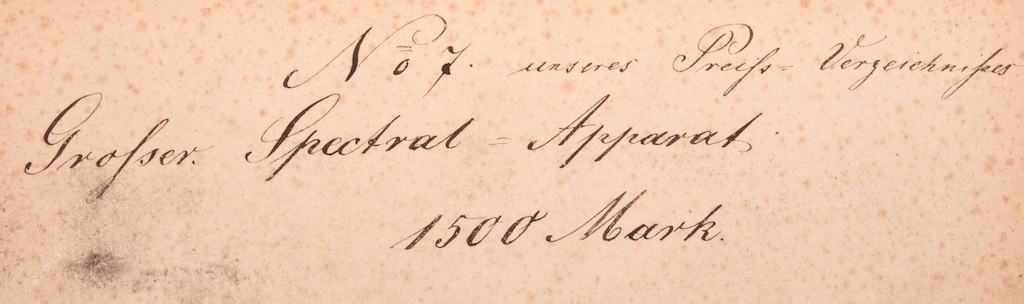 No 7. unseres Preiſs = Verzeichniſses
Groſser. Spectral = Apparat.
1500 Mark.